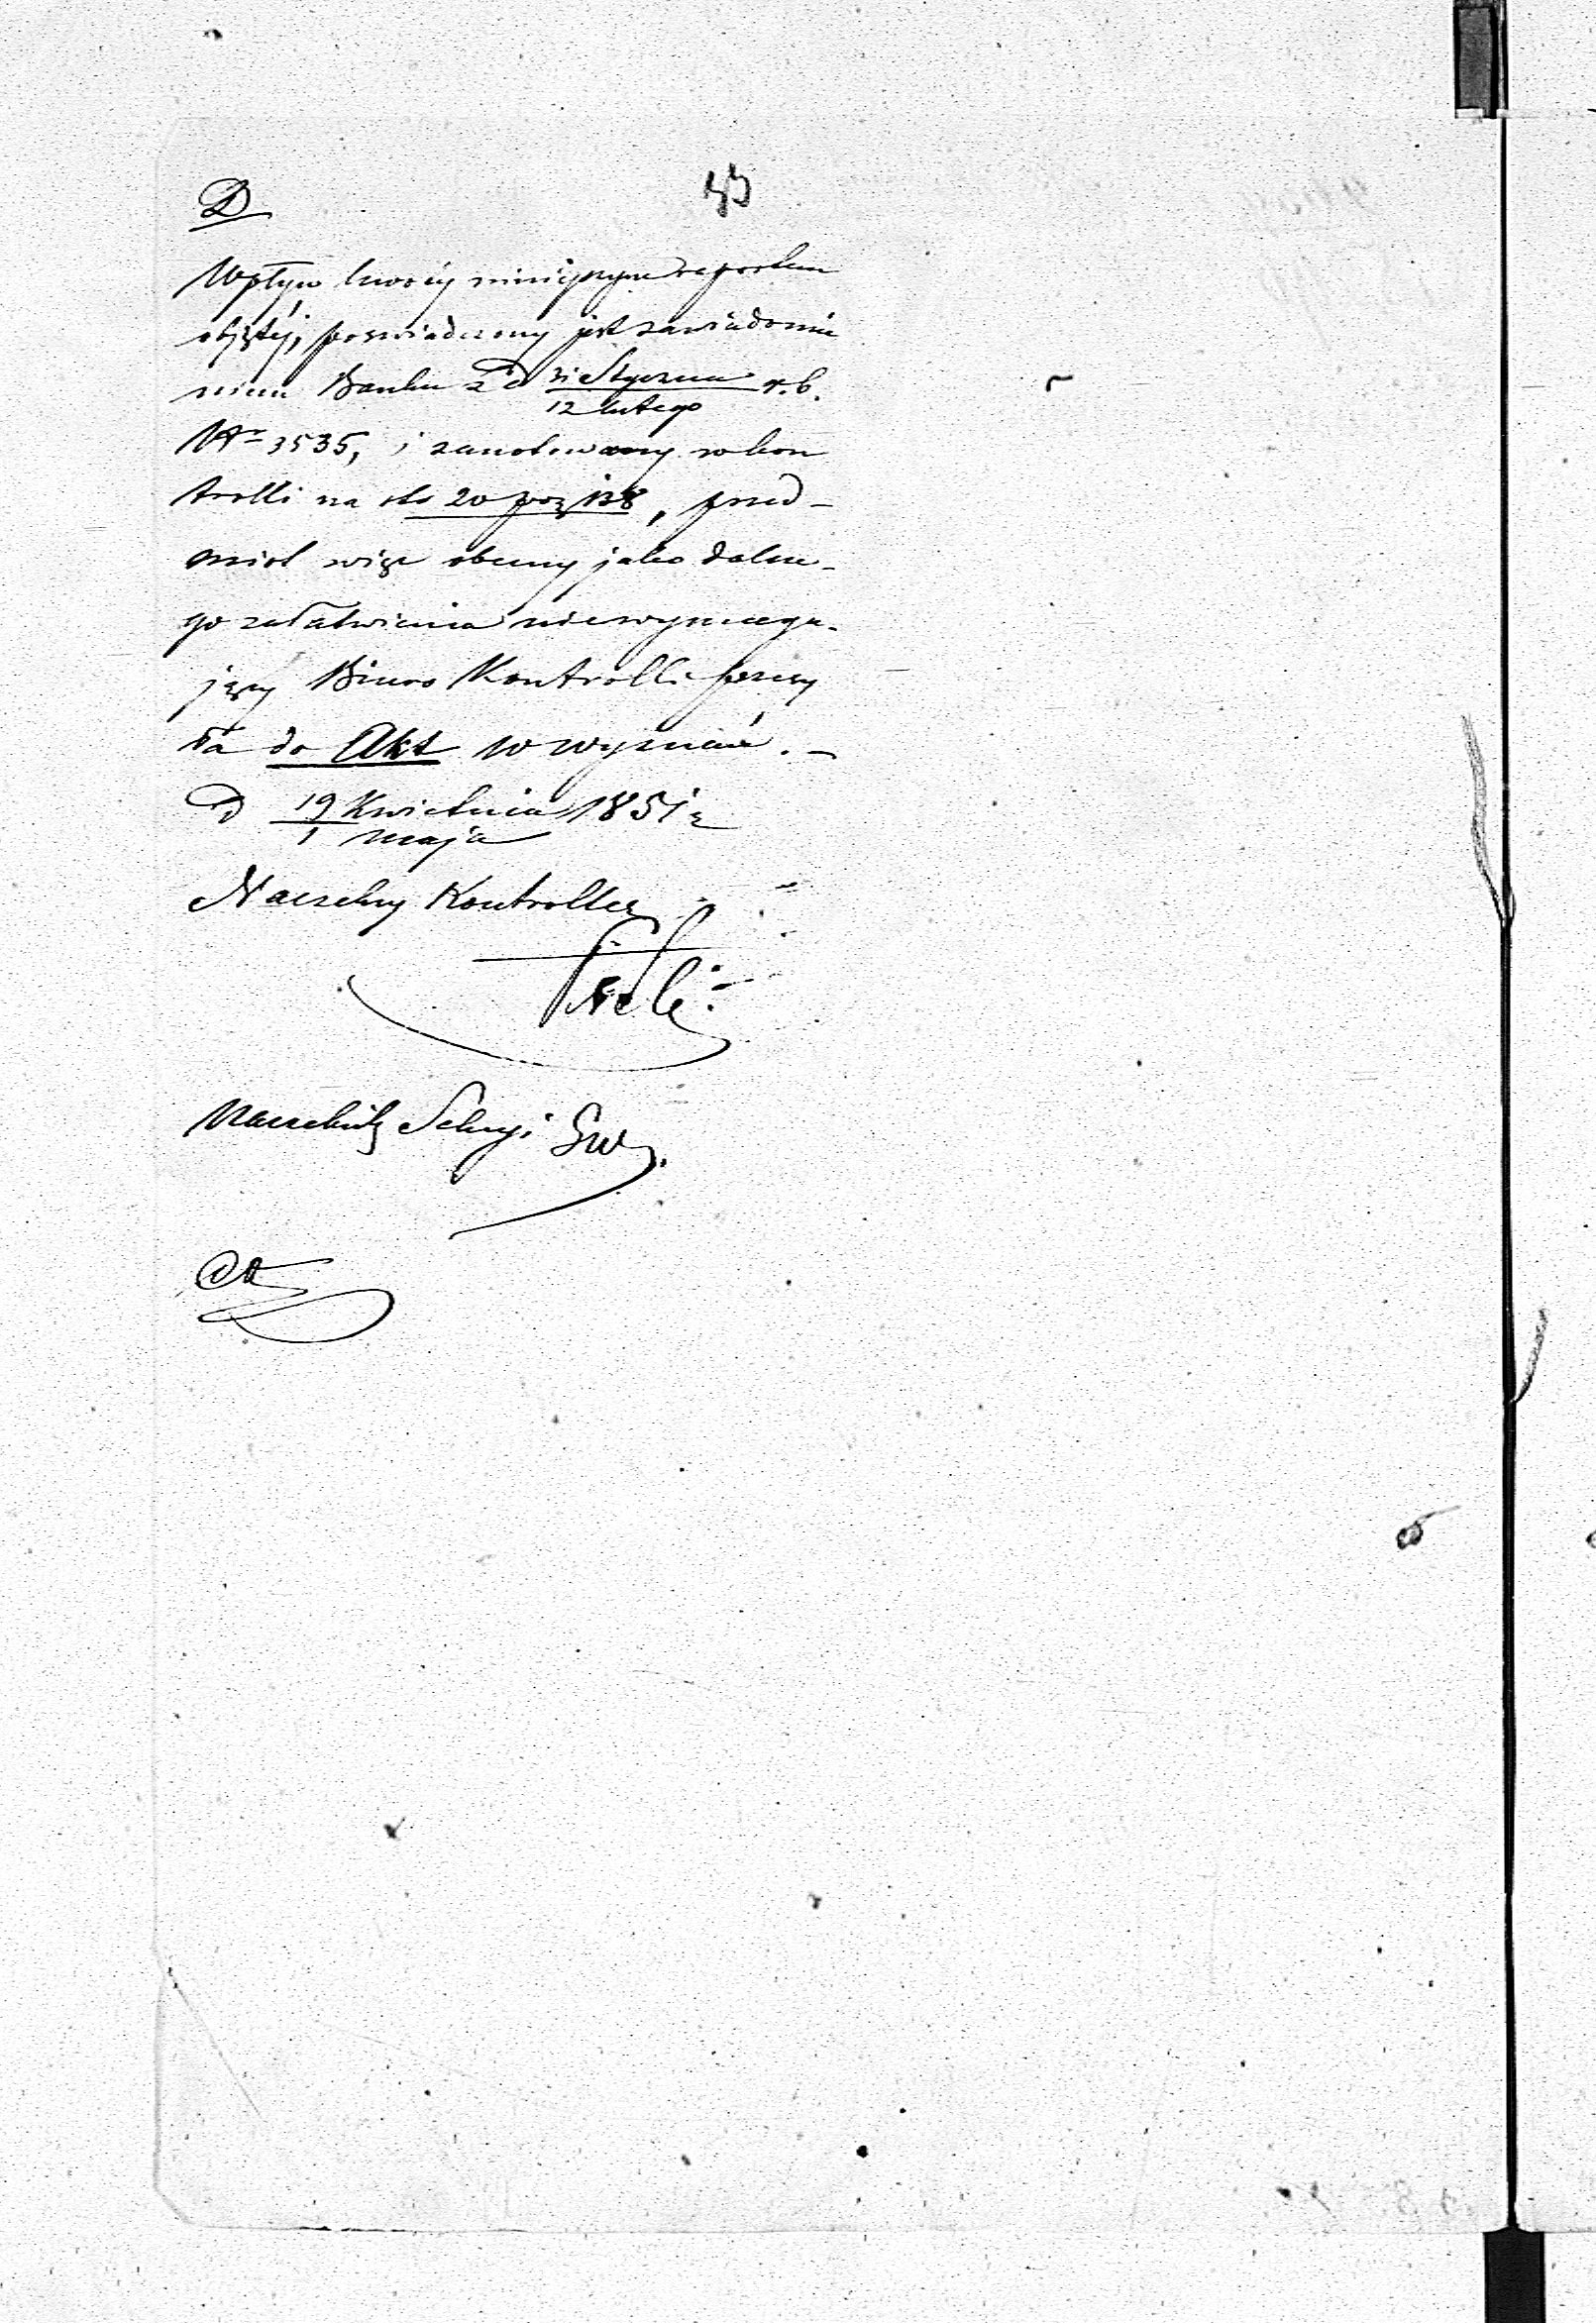 D
Wpływ kwoty niniejszym raportem
objętéj, poświadczony jest zawiadomie
niem Banku z d 31 Stycznia / 12 Lutego r. b.
Nr 3535, i zanotowany w kon
trolli na str 20 poz 138, przed-
miot więc obecny jako dalsze-
go załatwienia niewymaga-
jący Biuro Kontrolli przesy
ła do Akt w wyznań. -
D 19 Kwietnia / 1 Maja 1851 r
Naczelny Kontroller
Naczelnik Sekcyi